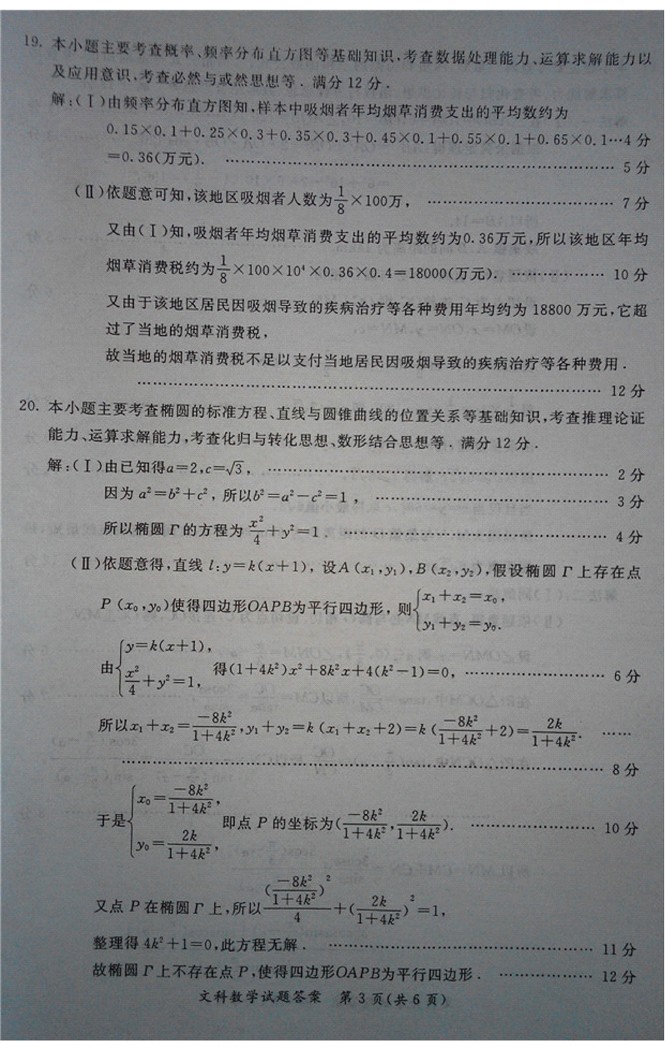 19. 本小题主要考查概率、频率分布直方图等基础知识,考查数据处理能力、运算求解能力以
及应用意识,考查必然与或然思想等.满分12分.
解:(Ⅰ)由频率分布直方图知,样本中吸烟者年均烟草消费支出的平均数约为
0.15×0.1+0.25×0.3+0.35×0.3+0.45×0.1+0.55×0.1+0.65×0.1…4分
=0.36(万元). ……………………………………………… 5分
(Ⅱ)依题意可知,该地区吸烟者人数为1/8×100万, ……………………… 7分
又由(Ⅰ)知,吸烟者年均烟草消费支出的平均数约为0.36万元,所以该地区年均
烟草消费税约为1/8×100×10⁴×0.36×0.4=18000(万元). ……………… 10分
又由于该地区居民因吸烟导致的疾病治疗等各种费用年均约为18800万元,它超
过了当地的烟草消费税,
故当地的烟草消费税不足以支付当地居民因吸烟导致的疾病治疗等各种费用.
……………………………………………………………… 12分
20. 本小题主要考查椭圆的标准方程、直线与圆锥曲线的位置关系等基础知识,考查推理论证
能力、运算求解能力,考查化归与转化思想、数形结合思想等.满分12分.
解:(Ⅰ)由已知得a=2,c=√3, ……………………………………………… 2分
因为a²=b²+c²,所以b²=a²−c²=1, ……………………………… 3分
所以椭圆Γ的方程为x²/4+y²=1. ……………………………………… 4分
(Ⅱ)依题意得,直线l:y=k(x+1),设A(x₁,y₁),B(x₂,y₂),假设椭圆Γ上存在点
P(x₀,y₀)使得四边形OAPB为平行四边形,则{x₁+x₂=x₀, y₁+y₂=y₀.
由{y=k(x+1), x²/4+y²=1, 得(1+4k²)x²+8k²x+4(k²−1)=0, ……………… 6分
所以x₁+x₂=−8k²/(1+4k²),y₁+y₂=k(x₁+x₂+2)=k(−8k²/(1+4k²)+2)=2k/(1+4k²). ……
……………………………………………………………… 8分
于是{x₀=−8k²/(1+4k²), y₀=2k/(1+4k²), 即点P的坐标为(−8k²/(1+4k²),2k/(1+4k²)). ……………… 10分
又点P在椭圆Γ上,所以(−8k²/(1+4k²))²/4+(2k/(1+4k²))²=1,
整理得4k²+1=0,此方程无解. ……………………………………… 11分
故椭圆Γ上不存在点P,使得四边形OAPB为平行四边形. ……………… 12分
文科数学试题答案 第3页(共6页)